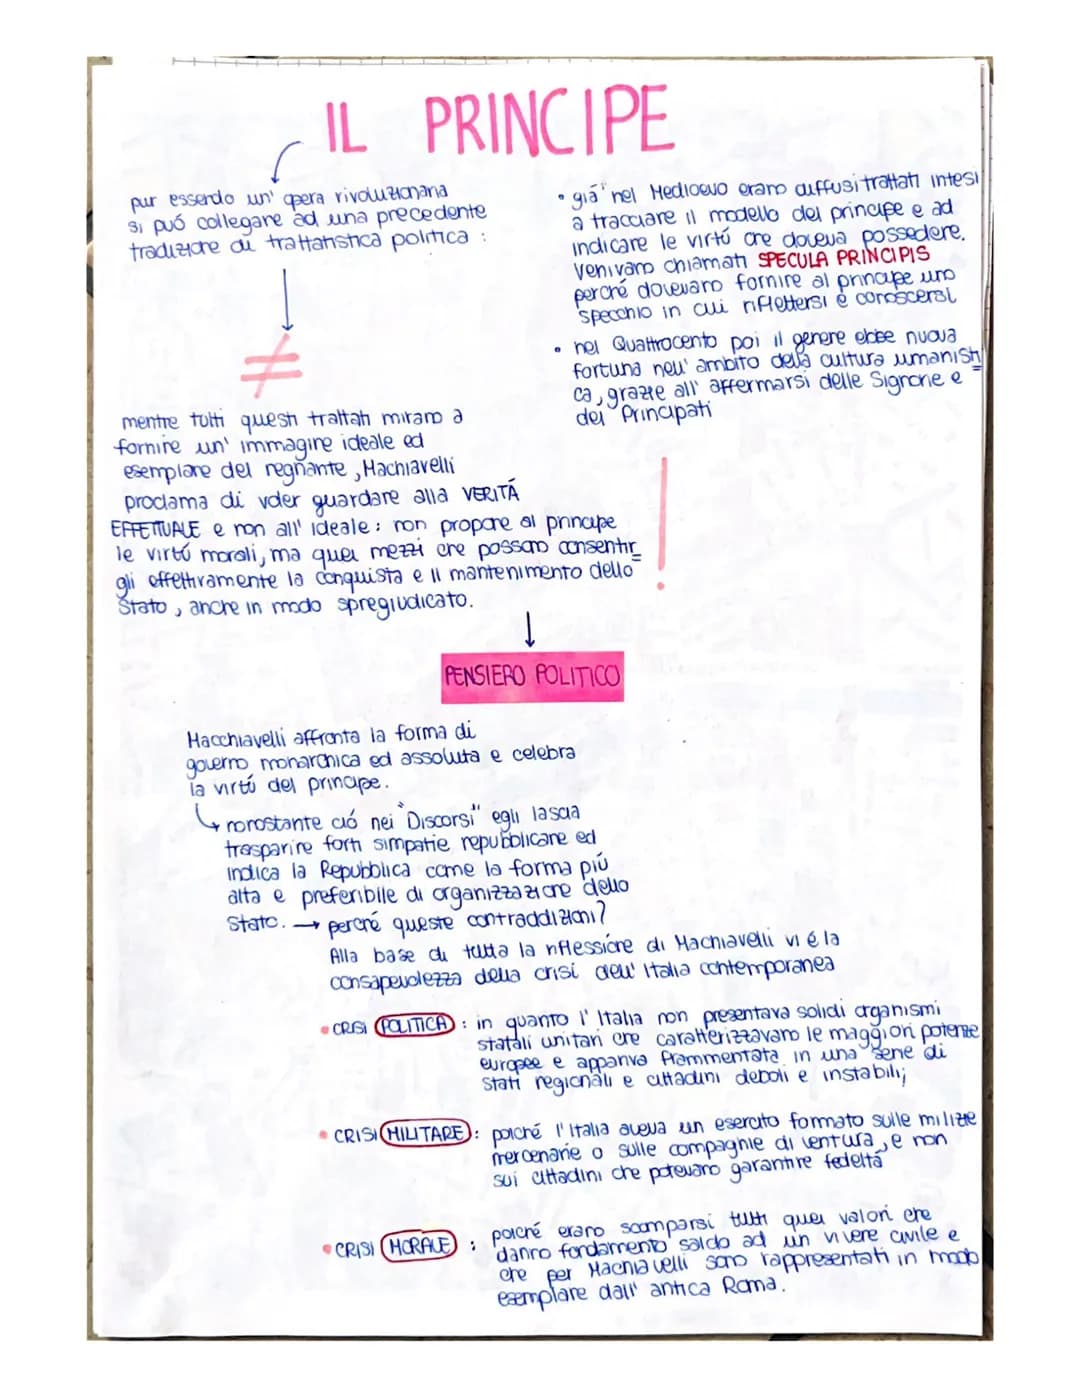 IL PRINCIPE
pur essendo un' opera rivoluzionaria
si puó collegare ad una precedente
tradizione di trattatistica politica :
≠
mentre tutti questi trattati mirano a
fornire un' immagine ideale ed
esemplare del regnante, Machiavelli
proclama di voler guardare alla VERITÁ
EFFETTUALE e non all' ideale: non propone al principe
le virtú morali, ma quei mezzi che possano consentir
gli effettivamente la conquista e il mantenimento dello
Stato, anche in modo spregiudicato.
!
• giá nel Medioevo erano diffusi trattati intesi
a tracciare il modello del principe e ad
indicare le virtú che doveva possedere.
Venivano chiamati SPECULA PRINCIPIS
perché dovevano fornire al principe uno
specchio in cui riflettersi e conoscersi
• nel Quattrocento poi il genere ebbe nuova
fortuna nell' ambito della cultura umanisti=
ca, grazie all' affermarsi delle Signorie e
dei Principati
PENSIERO POLITICO
Macchiavelli affronta la forma di
governo monarchica ed assoluta e celebra
la virtú del principe.
nonostante ció nei "Discorsi" egli lascia
trasparire forti simpatie repubblicane ed
indica la Repubblica come la forma piú
alta e preferibile di organizzazione dello
Stato. → perché queste contraddizioni?
Alla base di tutta la riflessione di Machiavelli vi é la
consapevolezza della crisi dell' Italia contemporanea
• CRISI POLITICA : in quanto l' Italia non presentava solidi organismi
statali unitari che caratterizzavano le maggiori potenze
europee e appariva frammentata in una serie di
stati regionali e cittadini deboli e instabili;
• CRISI MILITARE : poiché l' Italia aveva un esercito formato sulle milizie
mercenarie o sulle compagnie di ventura, e non
sui cittadini che potevano garantire fedeltá
• CRISI MORALE : poiché erano scomparsi tutti quei valori che
danno fondamento saldo ad un vivere civile e
che per Machiavelli sono rappresentati in modo
esemplare dall' antica Roma.